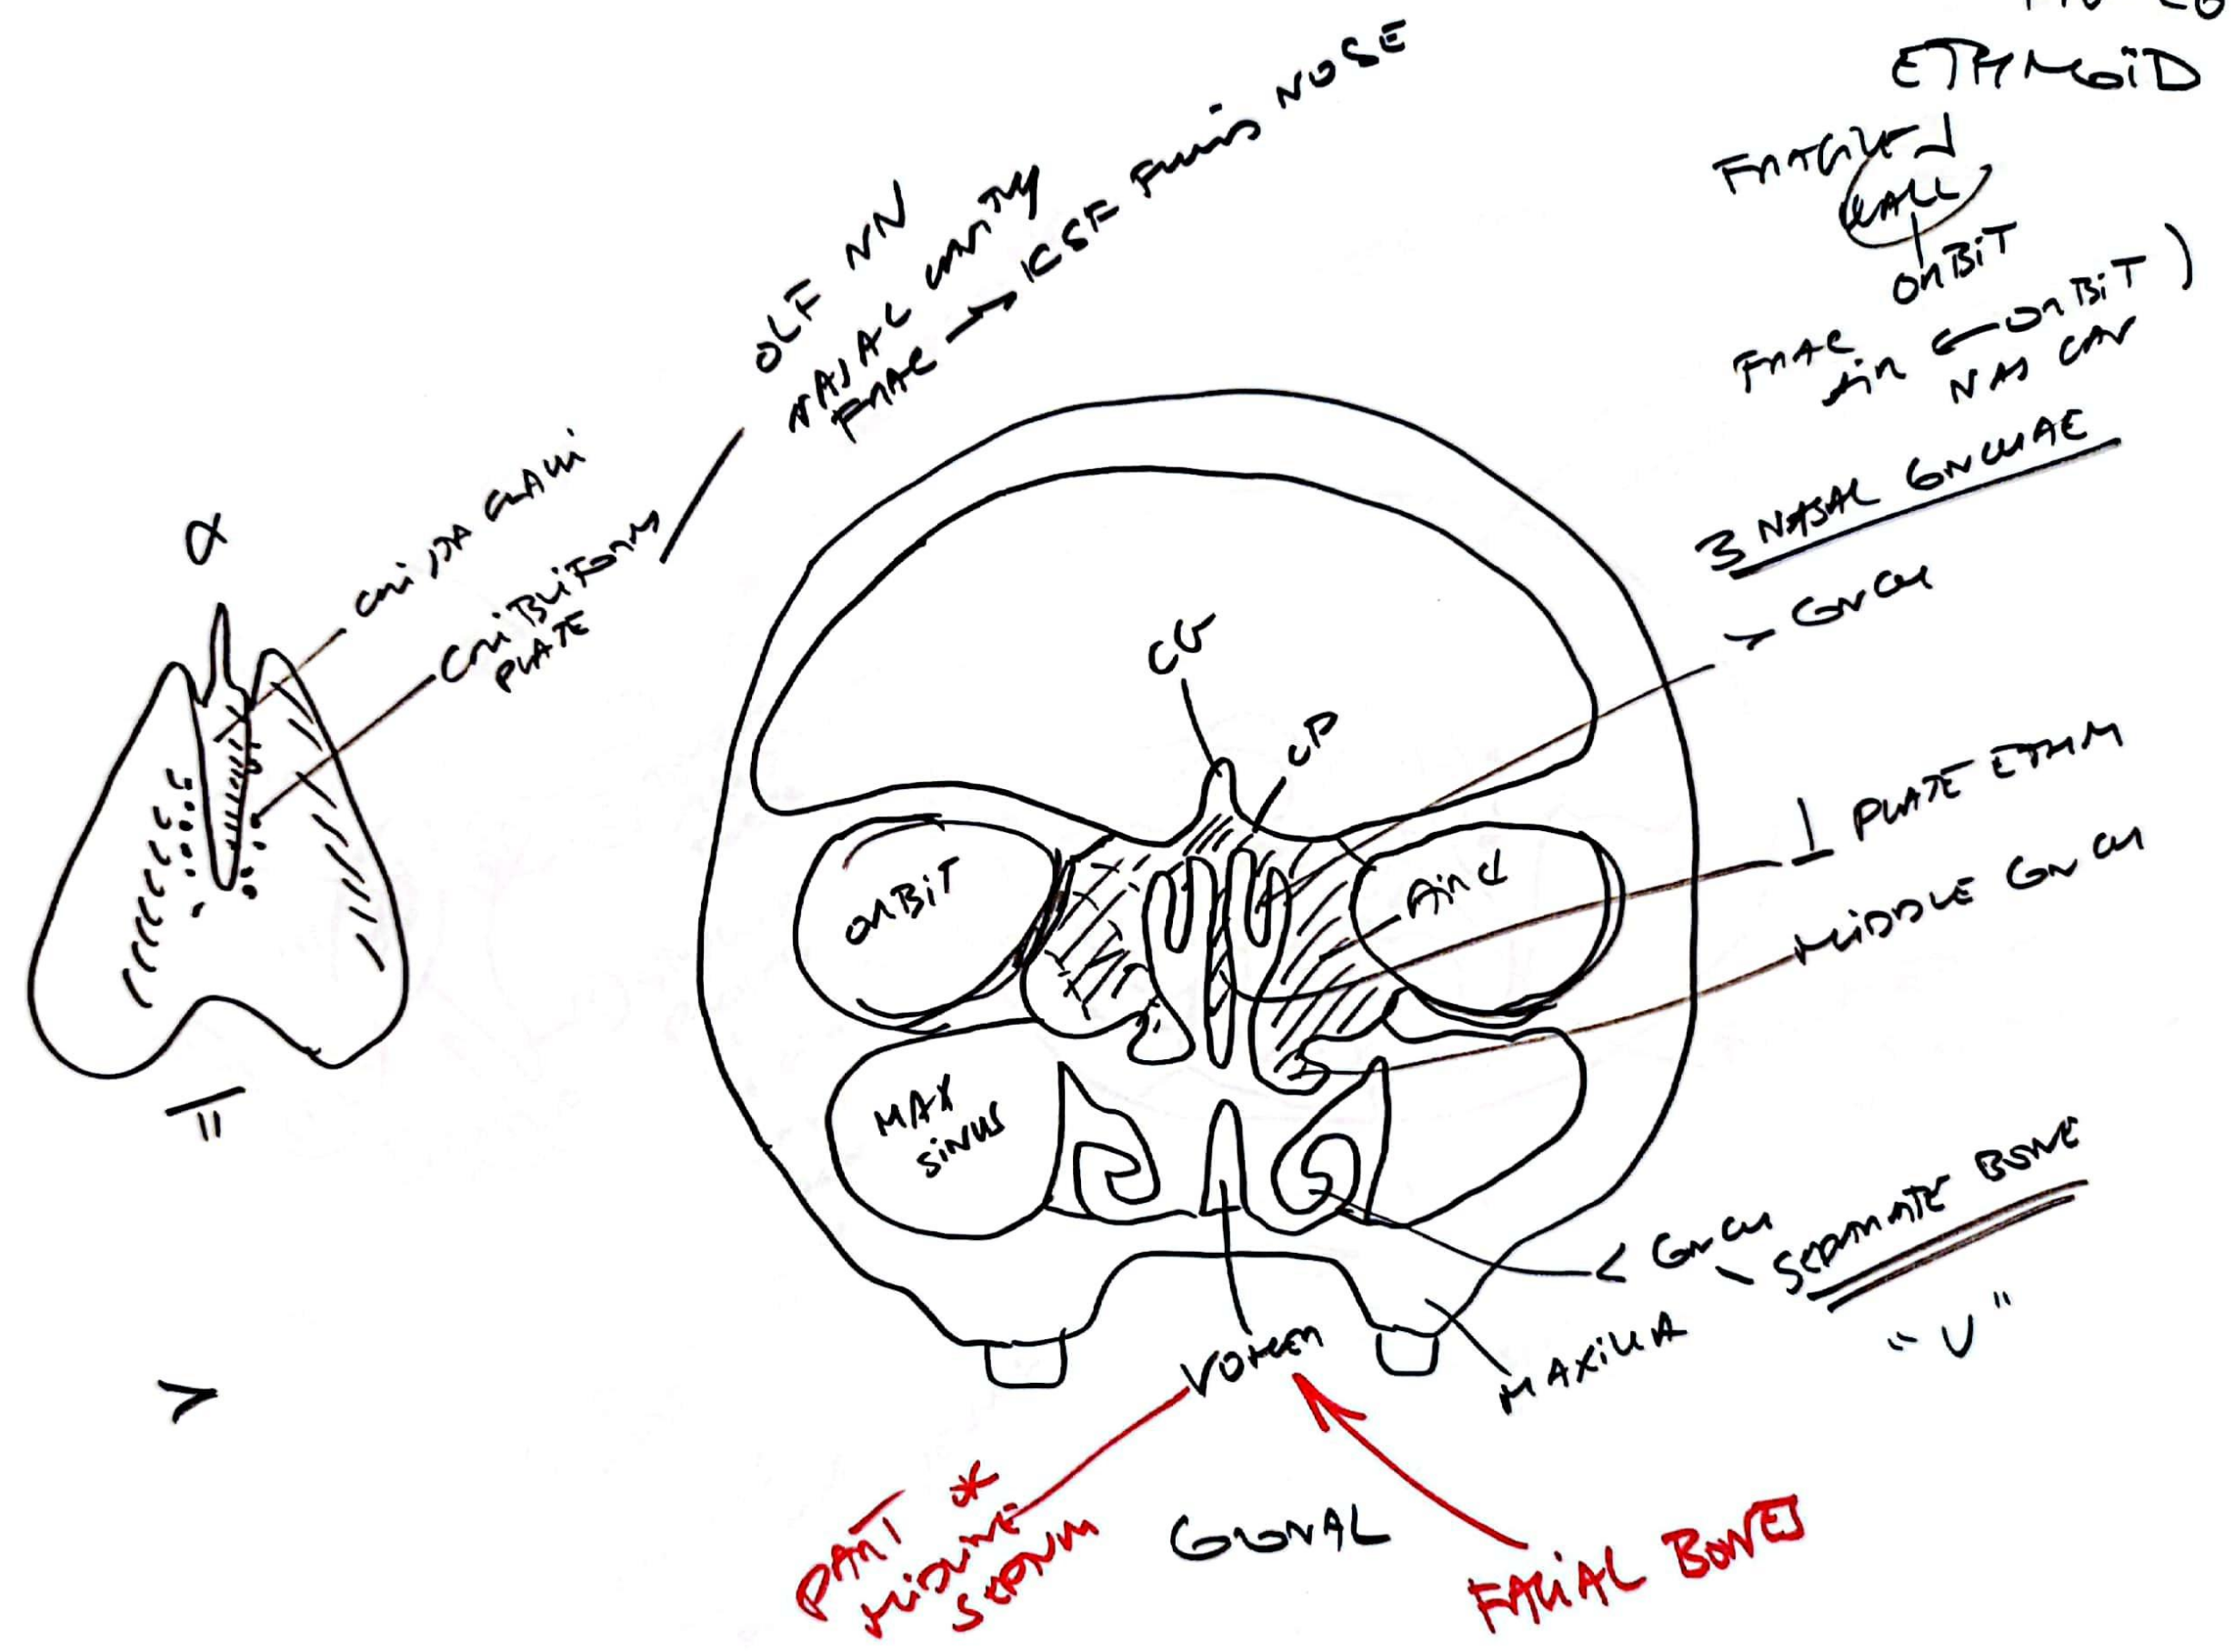 ETHMOiD
FRAGiLE
WALL
ORBiT
FRAC
AiR ← ORBiT )
NAS CAV
3 NASAL CONCHAE
> CONCH
⊥ PLATE ETHM
MiDDLE CONCH
< CONCH - SEPARATE BONE
"V"
MAXiLLA
OLF NN
NASAL CAVITY
FRAC → CSF FROM NOSE
CRiSTA GALLi
CRiBRiFORM
PLATE
α
π
>
CG
CP
ORBiT
AiR
MAX
SiNUS
VOMER
PART OF
MiDLiNE
SEPTUM
CORONAL
FACiAL BONES